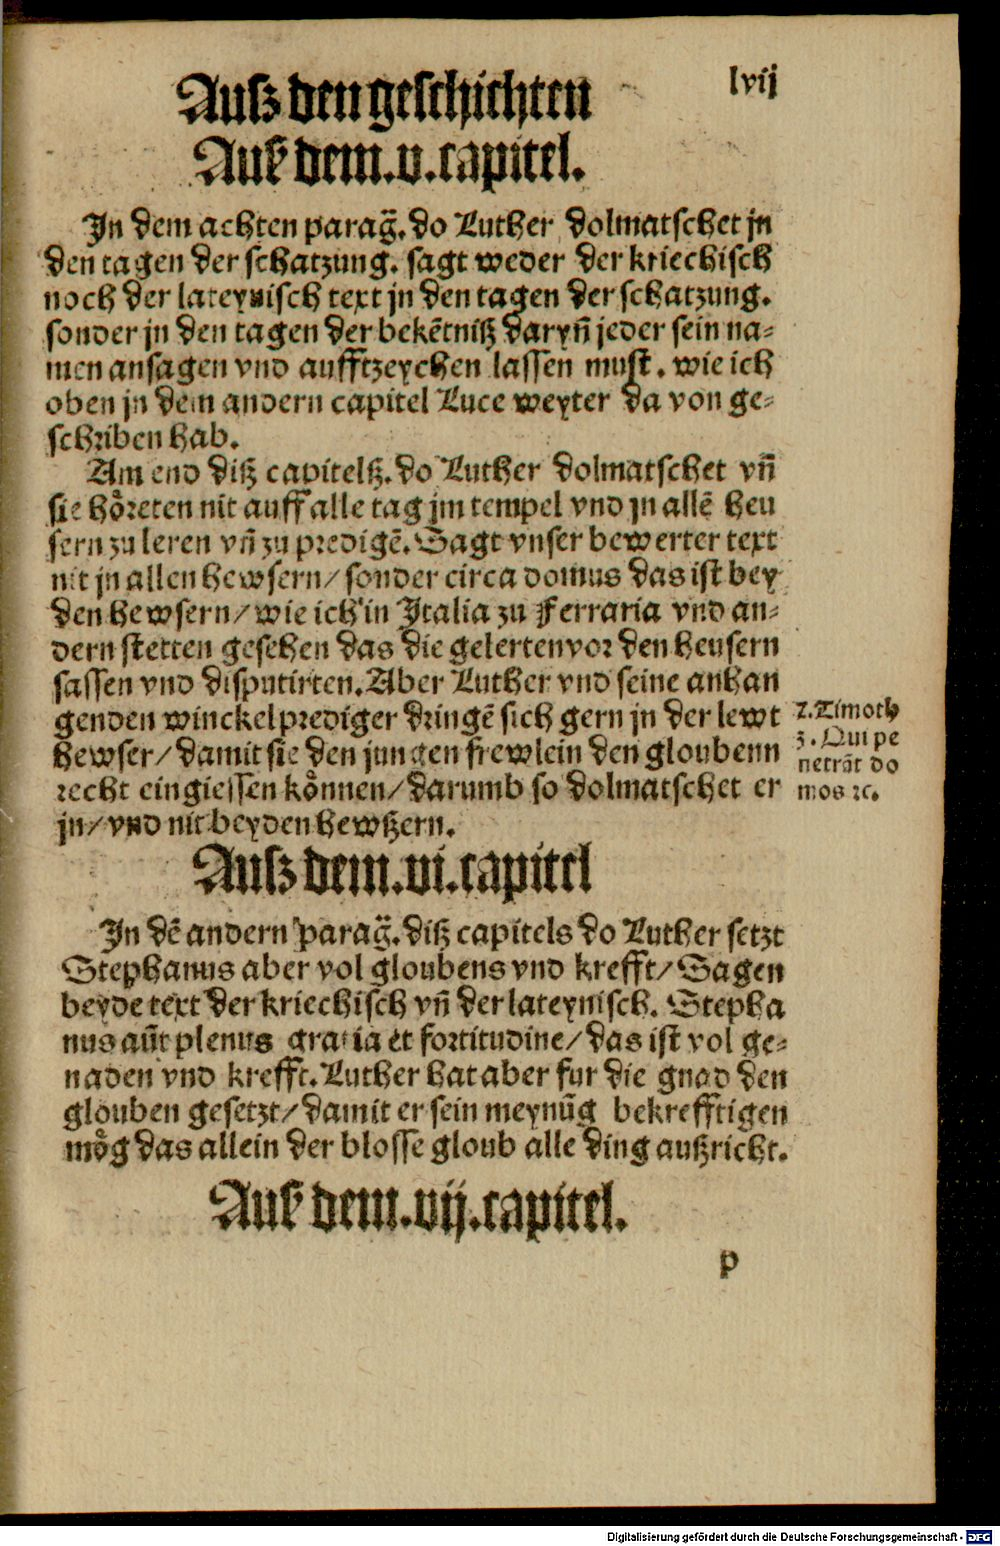 lvij
Ausz den geschichten
Auß dem.v.capitel.
Jn dem achten parag̃. do Luther dolmatschet jn
den tagen der schatzung. sagt weder der kriechisch
noch der lateynisch text jn den tagen der schatzung.
sonder jn den tagen der bekẽtnisz daryñ jeder sein na-
men ansagen vnd aufftzeychen lassen must. wie ich
oben jn dem andern capitel Luce weyter da von ge-
schriben hab.
Am end disz capitelsz. do Luther dolmatschet vñ
sie hoͤreten nit auff alle tag jm tempel vnd jn allẽ heu
sern zu leren vñ zu predigẽ. Sagt vnser bewerter text
nit jn allen hewsern/ sonder circa domus das ist bey
den hewsern/ wie ich in Jtalia zu Ferraria vnd an-
dern stetten gesehen das die gelerten vor den heusern
sassen vnd disputirten. Aber Luther vnd seine anhan
genden winckelprediger dringẽ sich gern jn der lewt
hewser/ damit sie den jungen frewlein den gloubenn
recht eingiessen koͤnnen/ darumb so dolmatschet er
jn/ vnd nit bey den hewszern.
2.Timoth
3. Qui pe
netrãt do
mos ꝛc.
Ausz dem.vi.capitel
Jn dẽ andern parag̃. disz capitels do Luther setzt
Stephanus aber vol gloubens vnd krefft/ Sagen
beyde text der kriechisch vñ der lateynisch. Stepha
nus aũt plenus gratia et fortitudine/ das ist vol ge-
naden vnd krefft. Luther hat aber fur die gnad den
glouben gesetzt/ damit er sein meynũg bekrefftigen
moͤg das allein der blosse gloub alle ding auszricht.
Auß dem.vij.capitel.
p
Digitalisierung gefördert durch die Deutsche Forschungsgemeinschaft - DFG